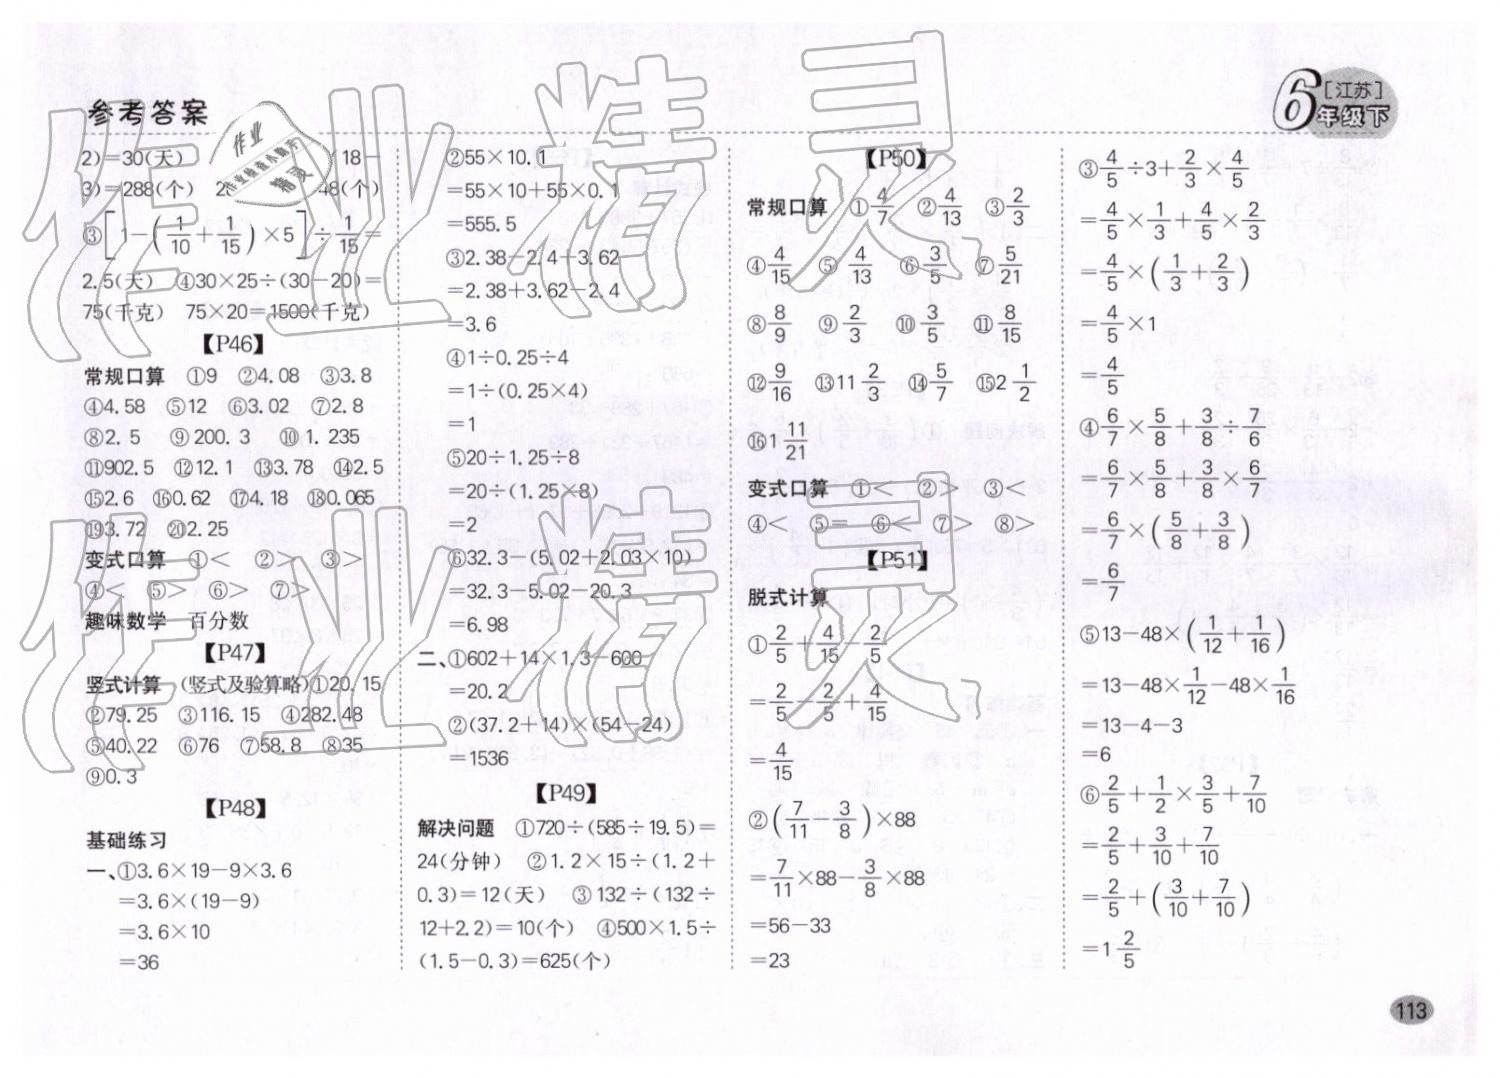 参考答案
6[江苏]
年级下
2)=30(天) (18-
3)=288(个) 48(个)
③[1-(1/10+1/15)×5]÷1/15=
2.5(天) ④30×25÷(30-20)=
75(千克) 75×20=1500(千克)
【P46】
常规口算 ①9 ②4.08 ③3.8
④4.58 ⑤12 ⑥3.02 ⑦2.8
⑧2.5 ⑨200.3 ⑩1.235
⑪902.5 ⑫12.1 ⑬3.78 ⑭2.5
⑮2.6 ⑯0.62 ⑰4.18 ⑱0.065
⑲3.72 ⑳2.25
变式口算 ①< ②> ③>
④< ⑤> ⑥> ⑦>
趣味数学 百分数
【P47】
竖式计算 (竖式及验算略)①20.15
②79.25 ③116.15 ④282.48
⑤40.22 ⑥76 ⑦58.8 ⑧35
⑨0.3
【P48】
基础练习
一、①3.6×19-9×3.6
=3.6×(19-9)
=3.6×10
=36
②55×10.1
=55×10+55×0.1
=555.5
③2.38-2.4+3.62
=2.38+3.62-2.4
=3.6
④1÷0.25÷4
=1÷(0.25×4)
=1
⑤20÷1.25÷8
=20÷(1.25×8)
=2
⑥32.3-(5.02+2.03×10)
=32.3-5.02-20.3
=6.98
二、①602+14×1.3-600
=20.2
②(37.2+14)×(54-24)
=1536
【P49】
解决问题 ①720÷(585÷19.5)=
24(分钟) ②1.2×15÷(1.2+
0.3)=12(天) ③132÷(132÷
12+2.2)=10(个) ④500×1.5÷
(1.5-0.3)=625(个)
【P50】
常规口算 ①4/7 ②4/13 ③2/3
④4/15 ⑤4/13 ⑥3/5 ⑦5/21
⑧8/9 ⑨2/3 ⑩3/5 ⑪8/15
⑫9/16 ⑬11 2/3 ⑭5/7 ⑮2 1/2
⑯1 11/21
变式口算 ①< ②> ③<
④< ⑤= ⑥< ⑦> ⑧>
【P51】
脱式计算
①2/5+4/15-2/5
=2/5-2/5+4/15
=4/15
②(7/11-3/8)×88
=7/11×88-3/8×88
=56-33
=23
③4/5÷3+2/3×4/5
=4/5×1/3+4/5×2/3
=4/5×(1/3+2/3)
=4/5×1
=4/5
④6/7×5/8+3/8÷7/6
=6/7×5/8+3/8×6/7
=6/7×(5/8+3/8)
=6/7
⑤13-48×(1/12+1/16)
=13-48×1/12-48×1/16
=13-4-3
=6
⑥2/5+1/2×3/5+7/10
=2/5+3/10+7/10
=2/5+(3/10+7/10)
=1 2/5
113
作业精灵
作业精灵
作业
精灵